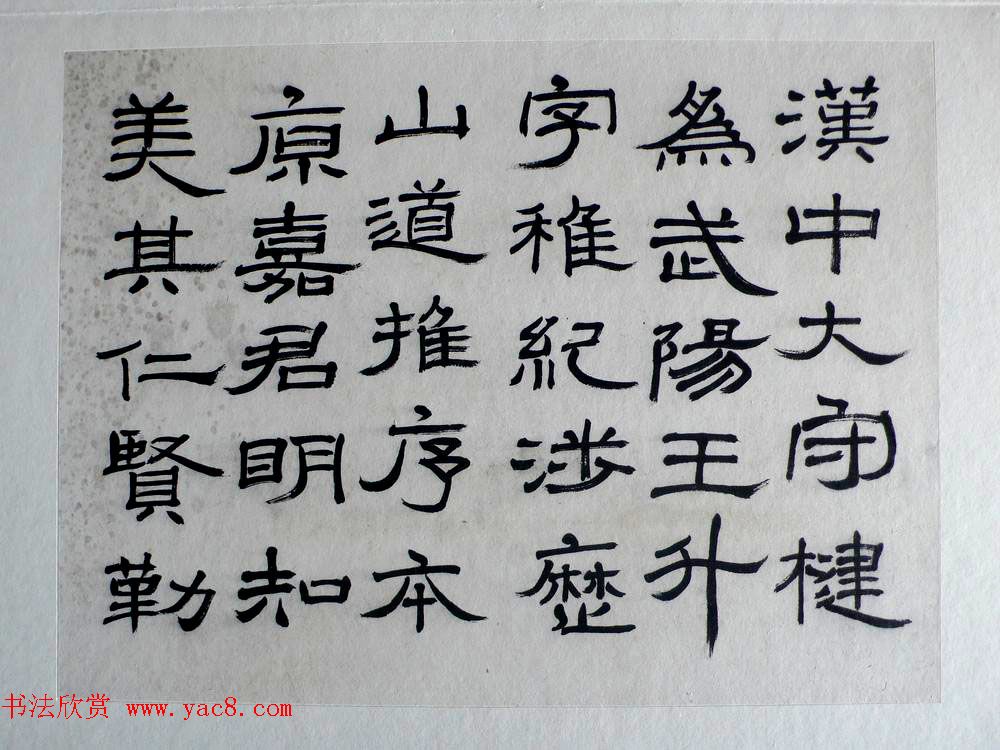 漢中大守楗
為武陽王升
字稚紀涉歷
山道推序本
原嘉君明知
美其仁賢勤
书法欣赏 www.yac8.com